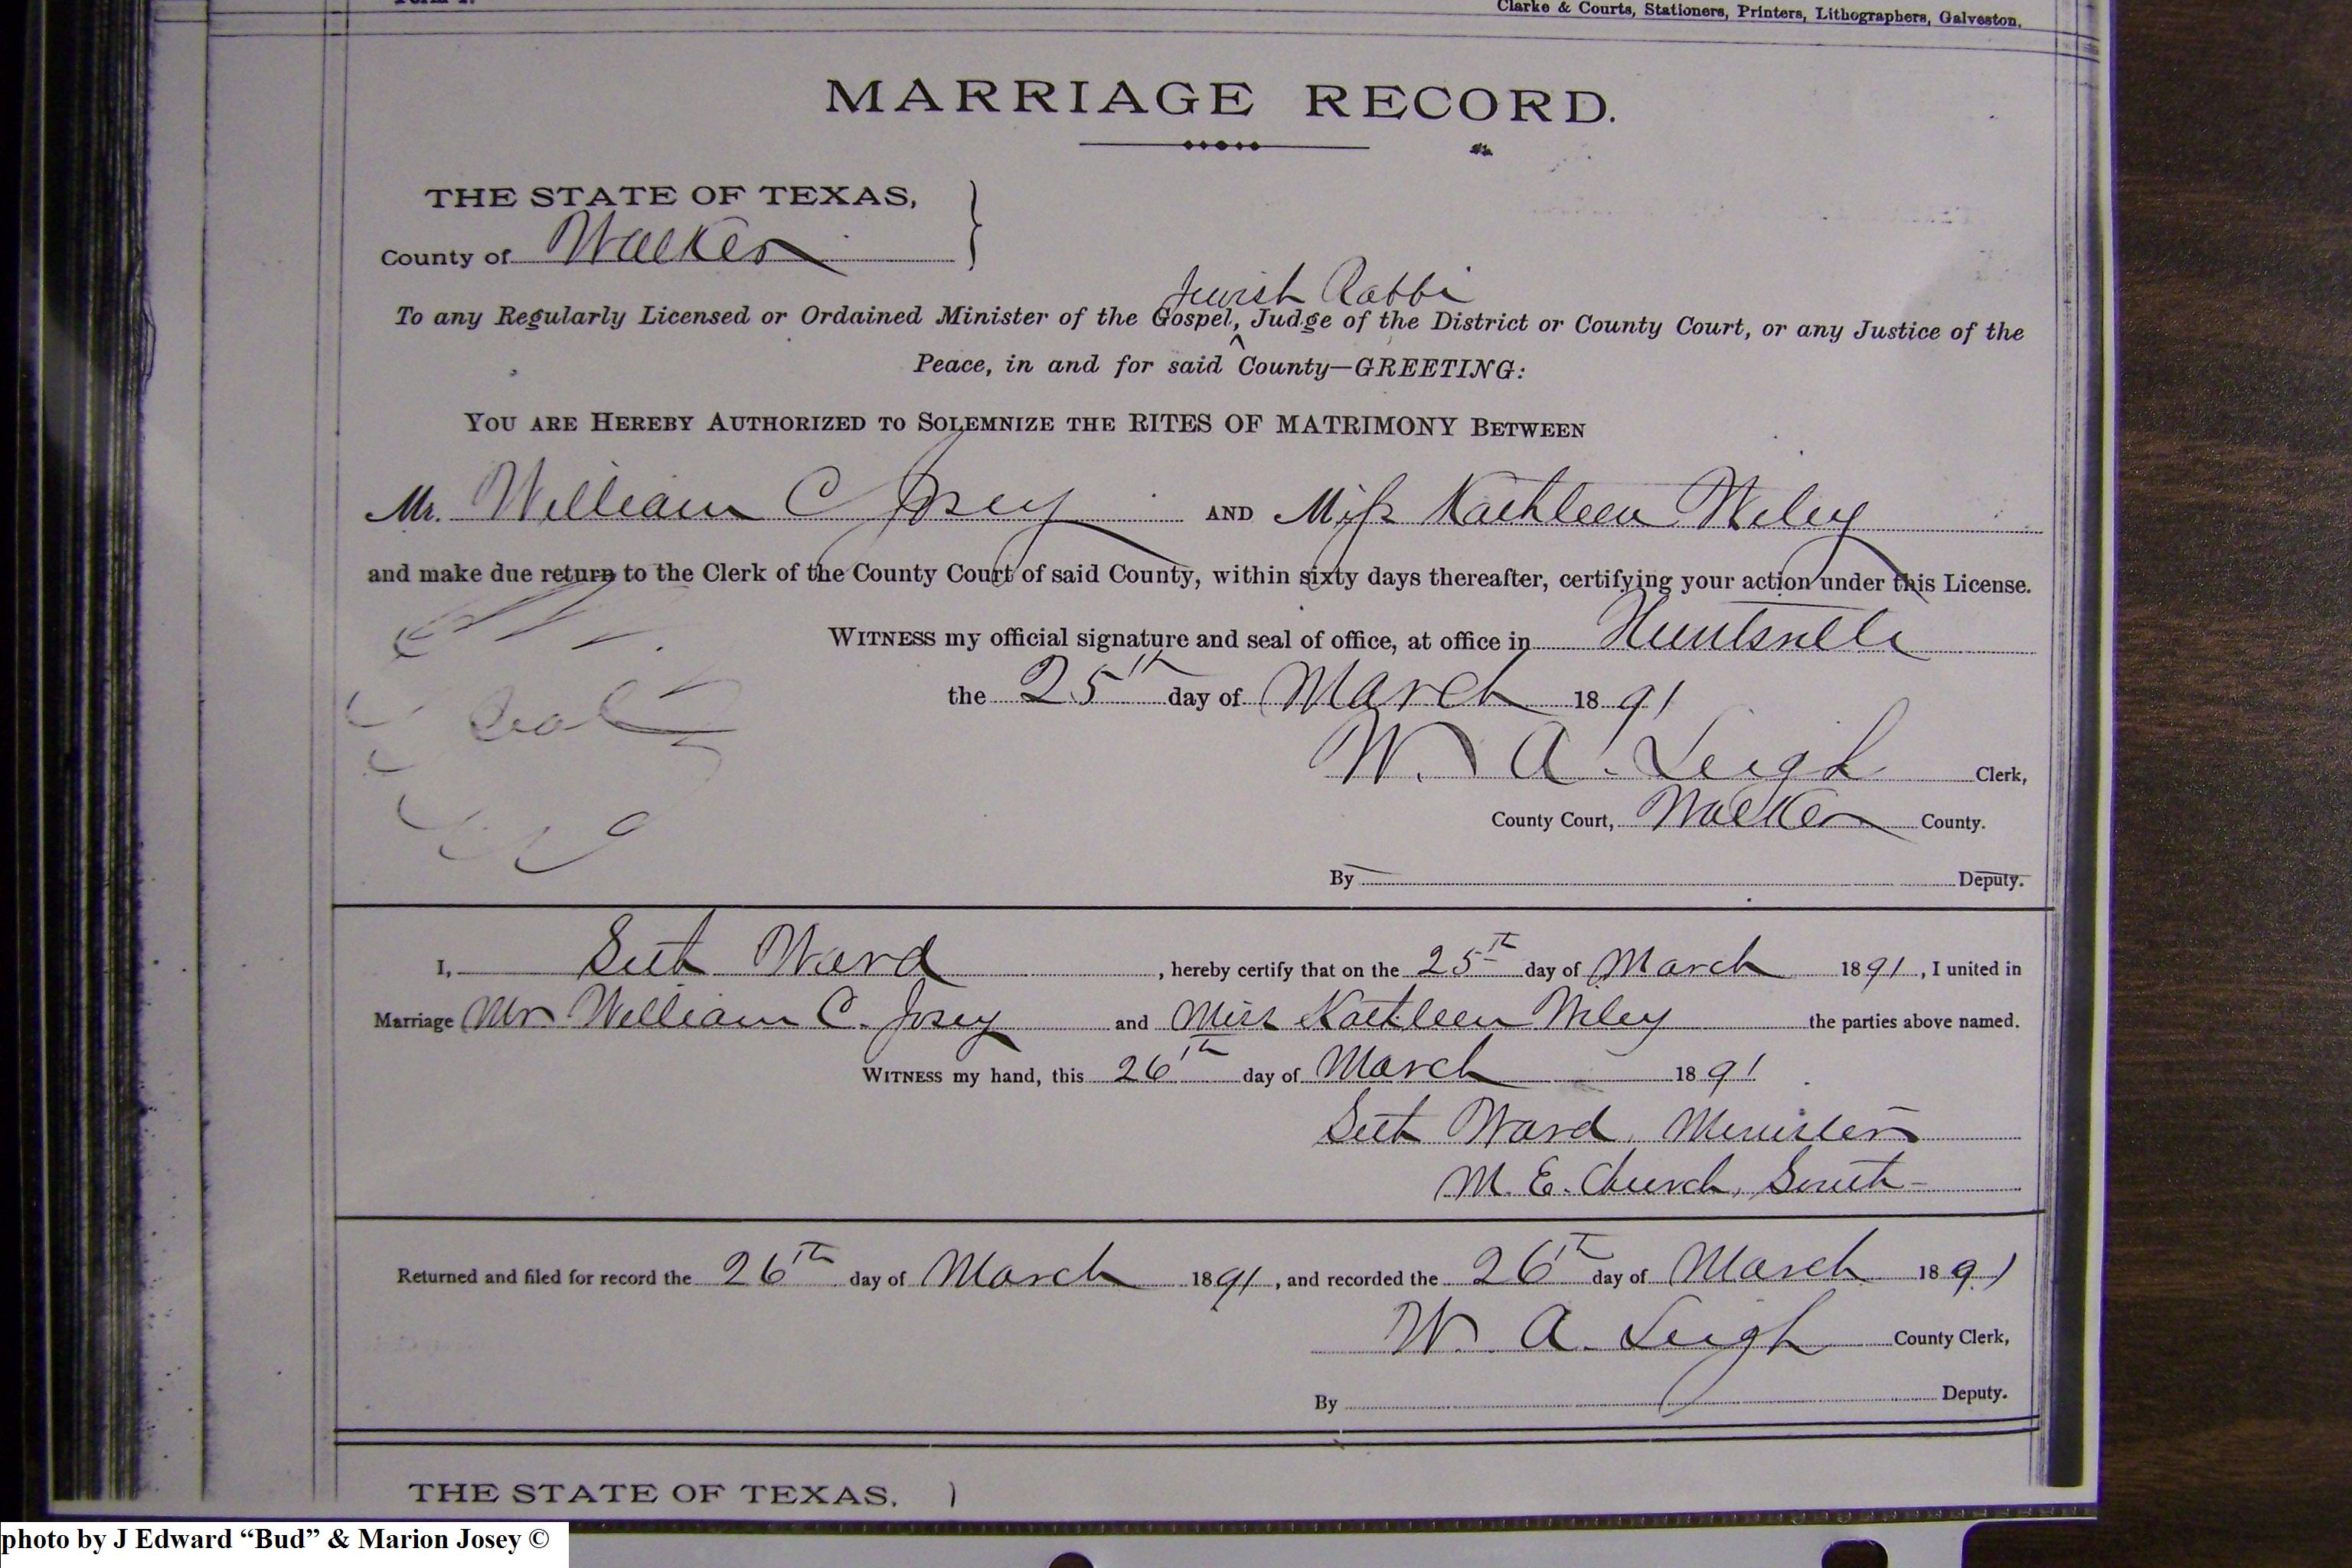 Clarke & Courts, Stationers, Printers, Lithographers, Galveston.
MARRIAGE RECORD.
THE STATE OF TEXAS,
County of Walker
Jewish Rabbi
To any Regularly Licensed or Ordained Minister of the Gospel, ^ Judge of the District or County Court, or any Justice of the
Peace, in and for said County—GREETING:
YOU ARE HEREBY AUTHORIZED TO SOLEMNIZE THE RITES OF MATRIMONY BETWEEN
Mr. William C Josey AND Miss Kathleen Wiley
and make due return to the Clerk of the County Court of said County, within sixty days thereafter, certifying your action under this License.
WITNESS my official signature and seal of office, at office in Huntsville
the 25th day of March 1891
Seal
W. A. Leigh Clerk,
County Court, Walker County.
By Deputy.
I, Seth Ward, hereby certify that on the 25th day of March 1891, I united in
Marriage Mr William C. Josey and Miss Kathleen Wiley the parties above named.
WITNESS my hand, this 26th day of March 1891
Seth Ward, Minister
M. E. Church, South-
Returned and filed for record the 26th day of March 1891, and recorded the 26th day of March 1891
W. A. Leigh County Clerk,
By Deputy.
THE STATE OF TEXAS,
photo by J Edward “Bud” & Marion Josey ©